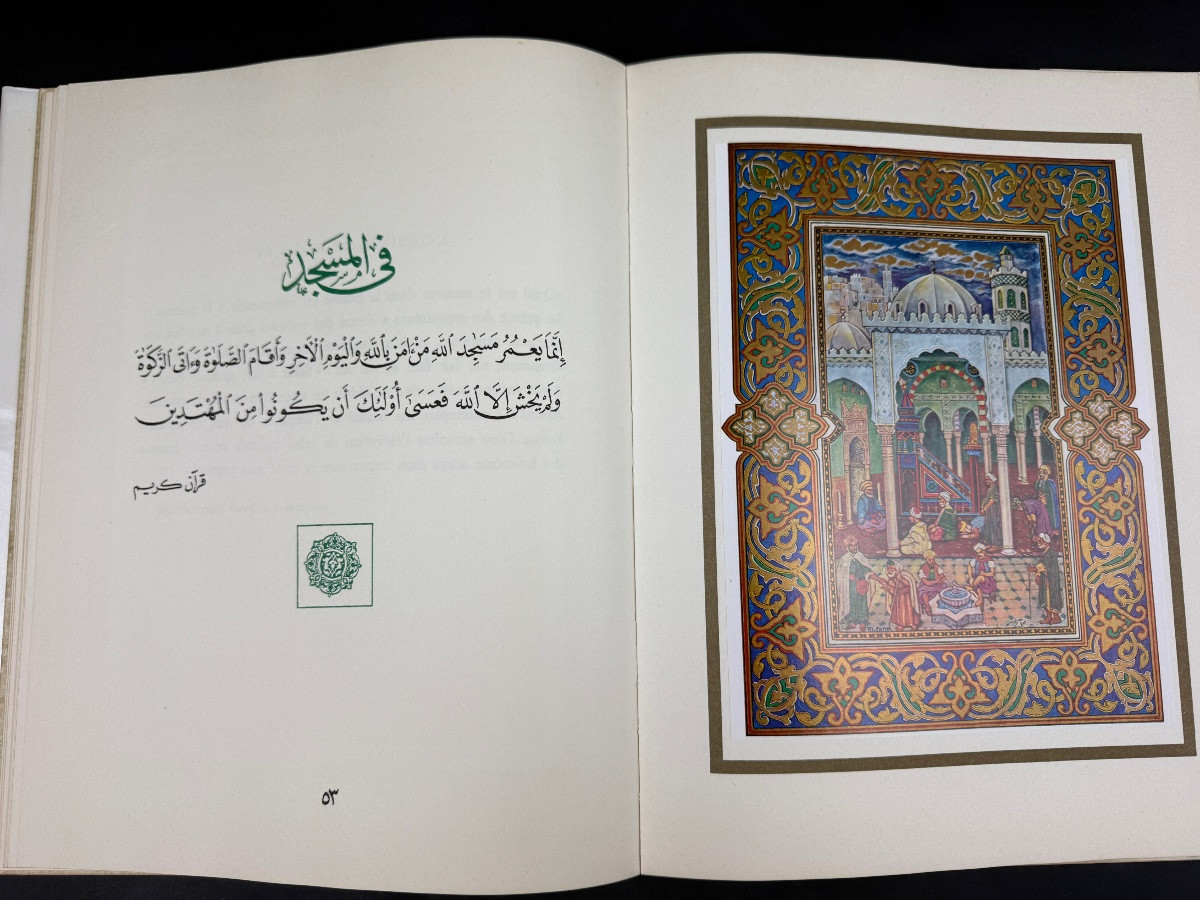 في المسجد
إِنَّمَا يَعْمُرُ مَسَٰجِدَ ٱللَّهِ مَنْ ءَامَنَ بِٱللَّهِ وَٱلْيَوْمِ ٱلْأَخِرِ وَأَقَامَ ٱلصَّلَوٰةَ وَءَاتَى ٱلزَّكَوٰةَ
وَلَمْ يَخْشَ إِلَّا ٱللَّهَ فَعَسَىٰٓ أُو۟لَٰٓئِكَ أَن يَكُونُوا۟ مِنَ ٱلْمُهْتَدِينَ
قرآن كريم
٥٣